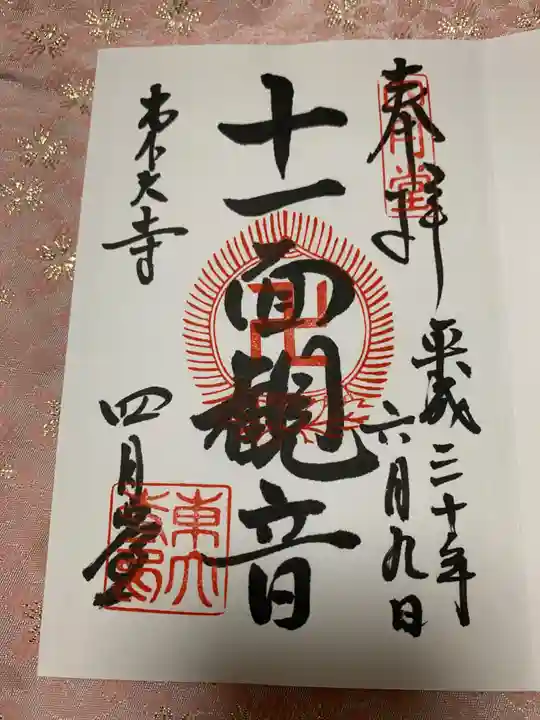 奉拝
平成三十年
六月九日
十一面観音
東大寺
四月堂
卍